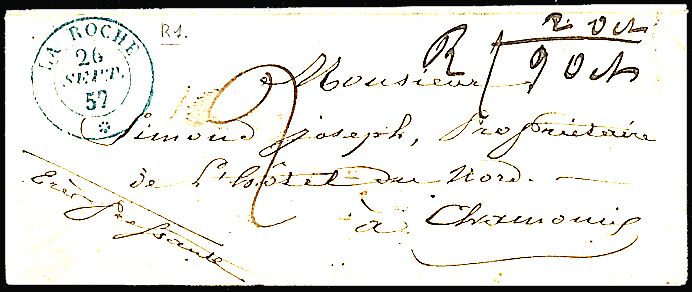 LA ROCHE
26
SEPT.
57
R1.
R
2 Oct
9 Oct
Monsieur
2
Simond Joseph, Propriétaire
de L'hôtel du Nord.
à Chamounix
Très Pressante